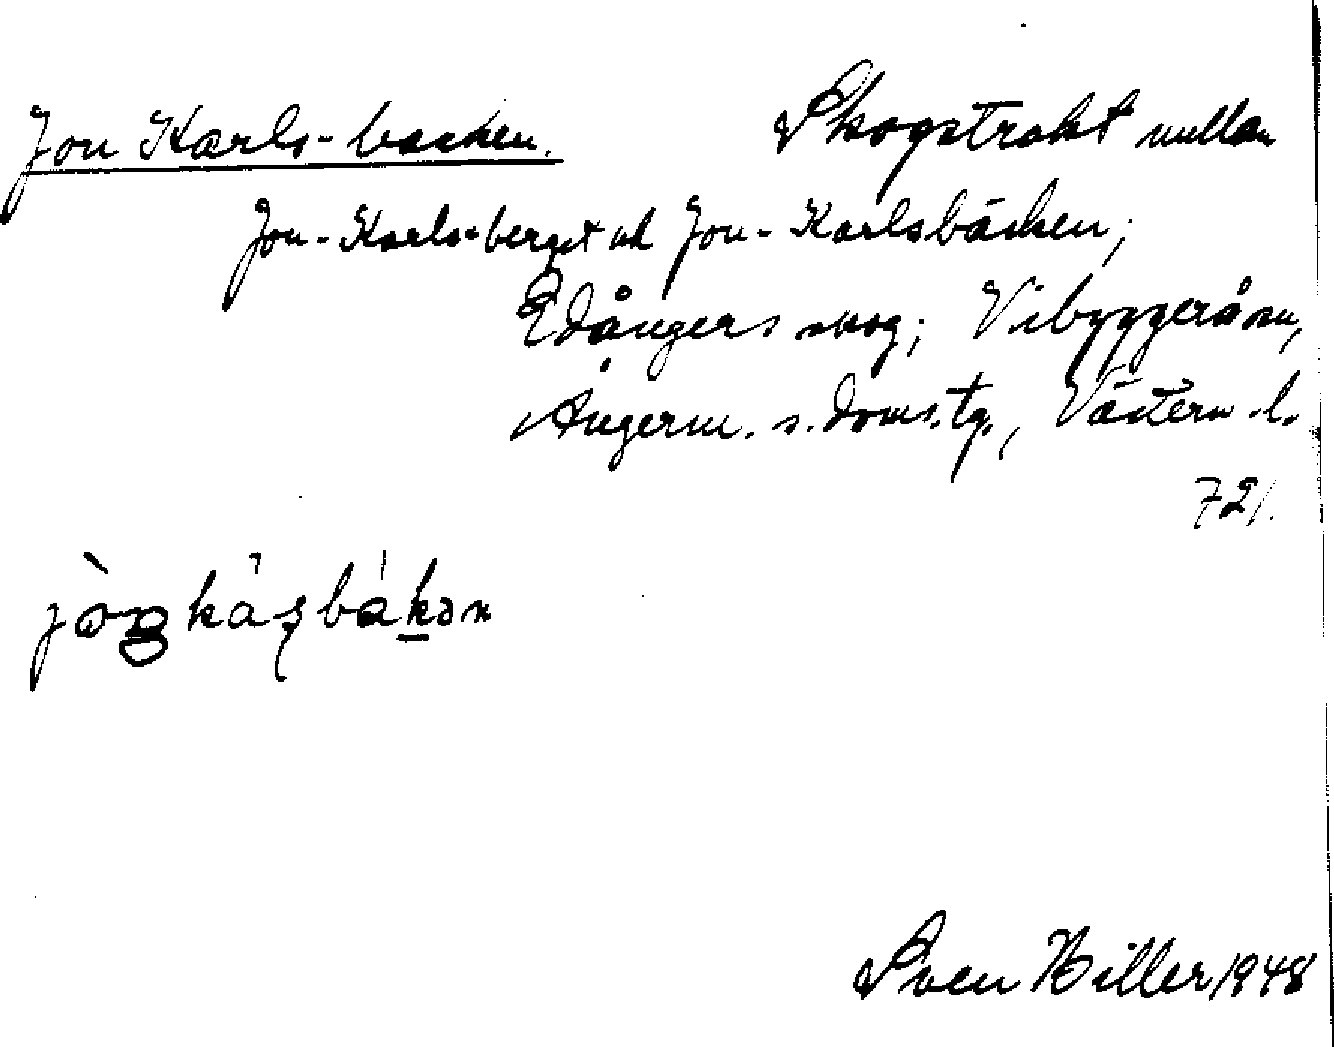 Jon Karls-backen. Skogstrakt mellan
Jon-Karls-berget och Jon-Karlsbäcken;
Edångers skog; Vibyggerå sn,
Ångerm. s. doms. tg., Västern. l.
721.
Sven Hiller 1948